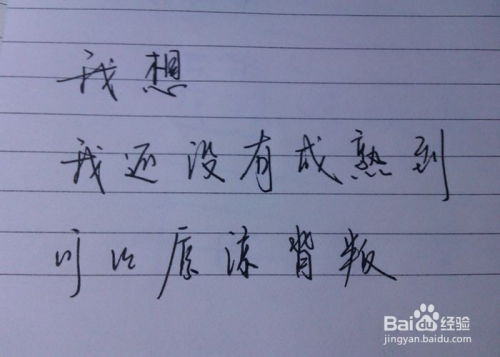 我想
我还没有成熟到
可以原谅背叛
Baidu经验
jingyan.baidu.com